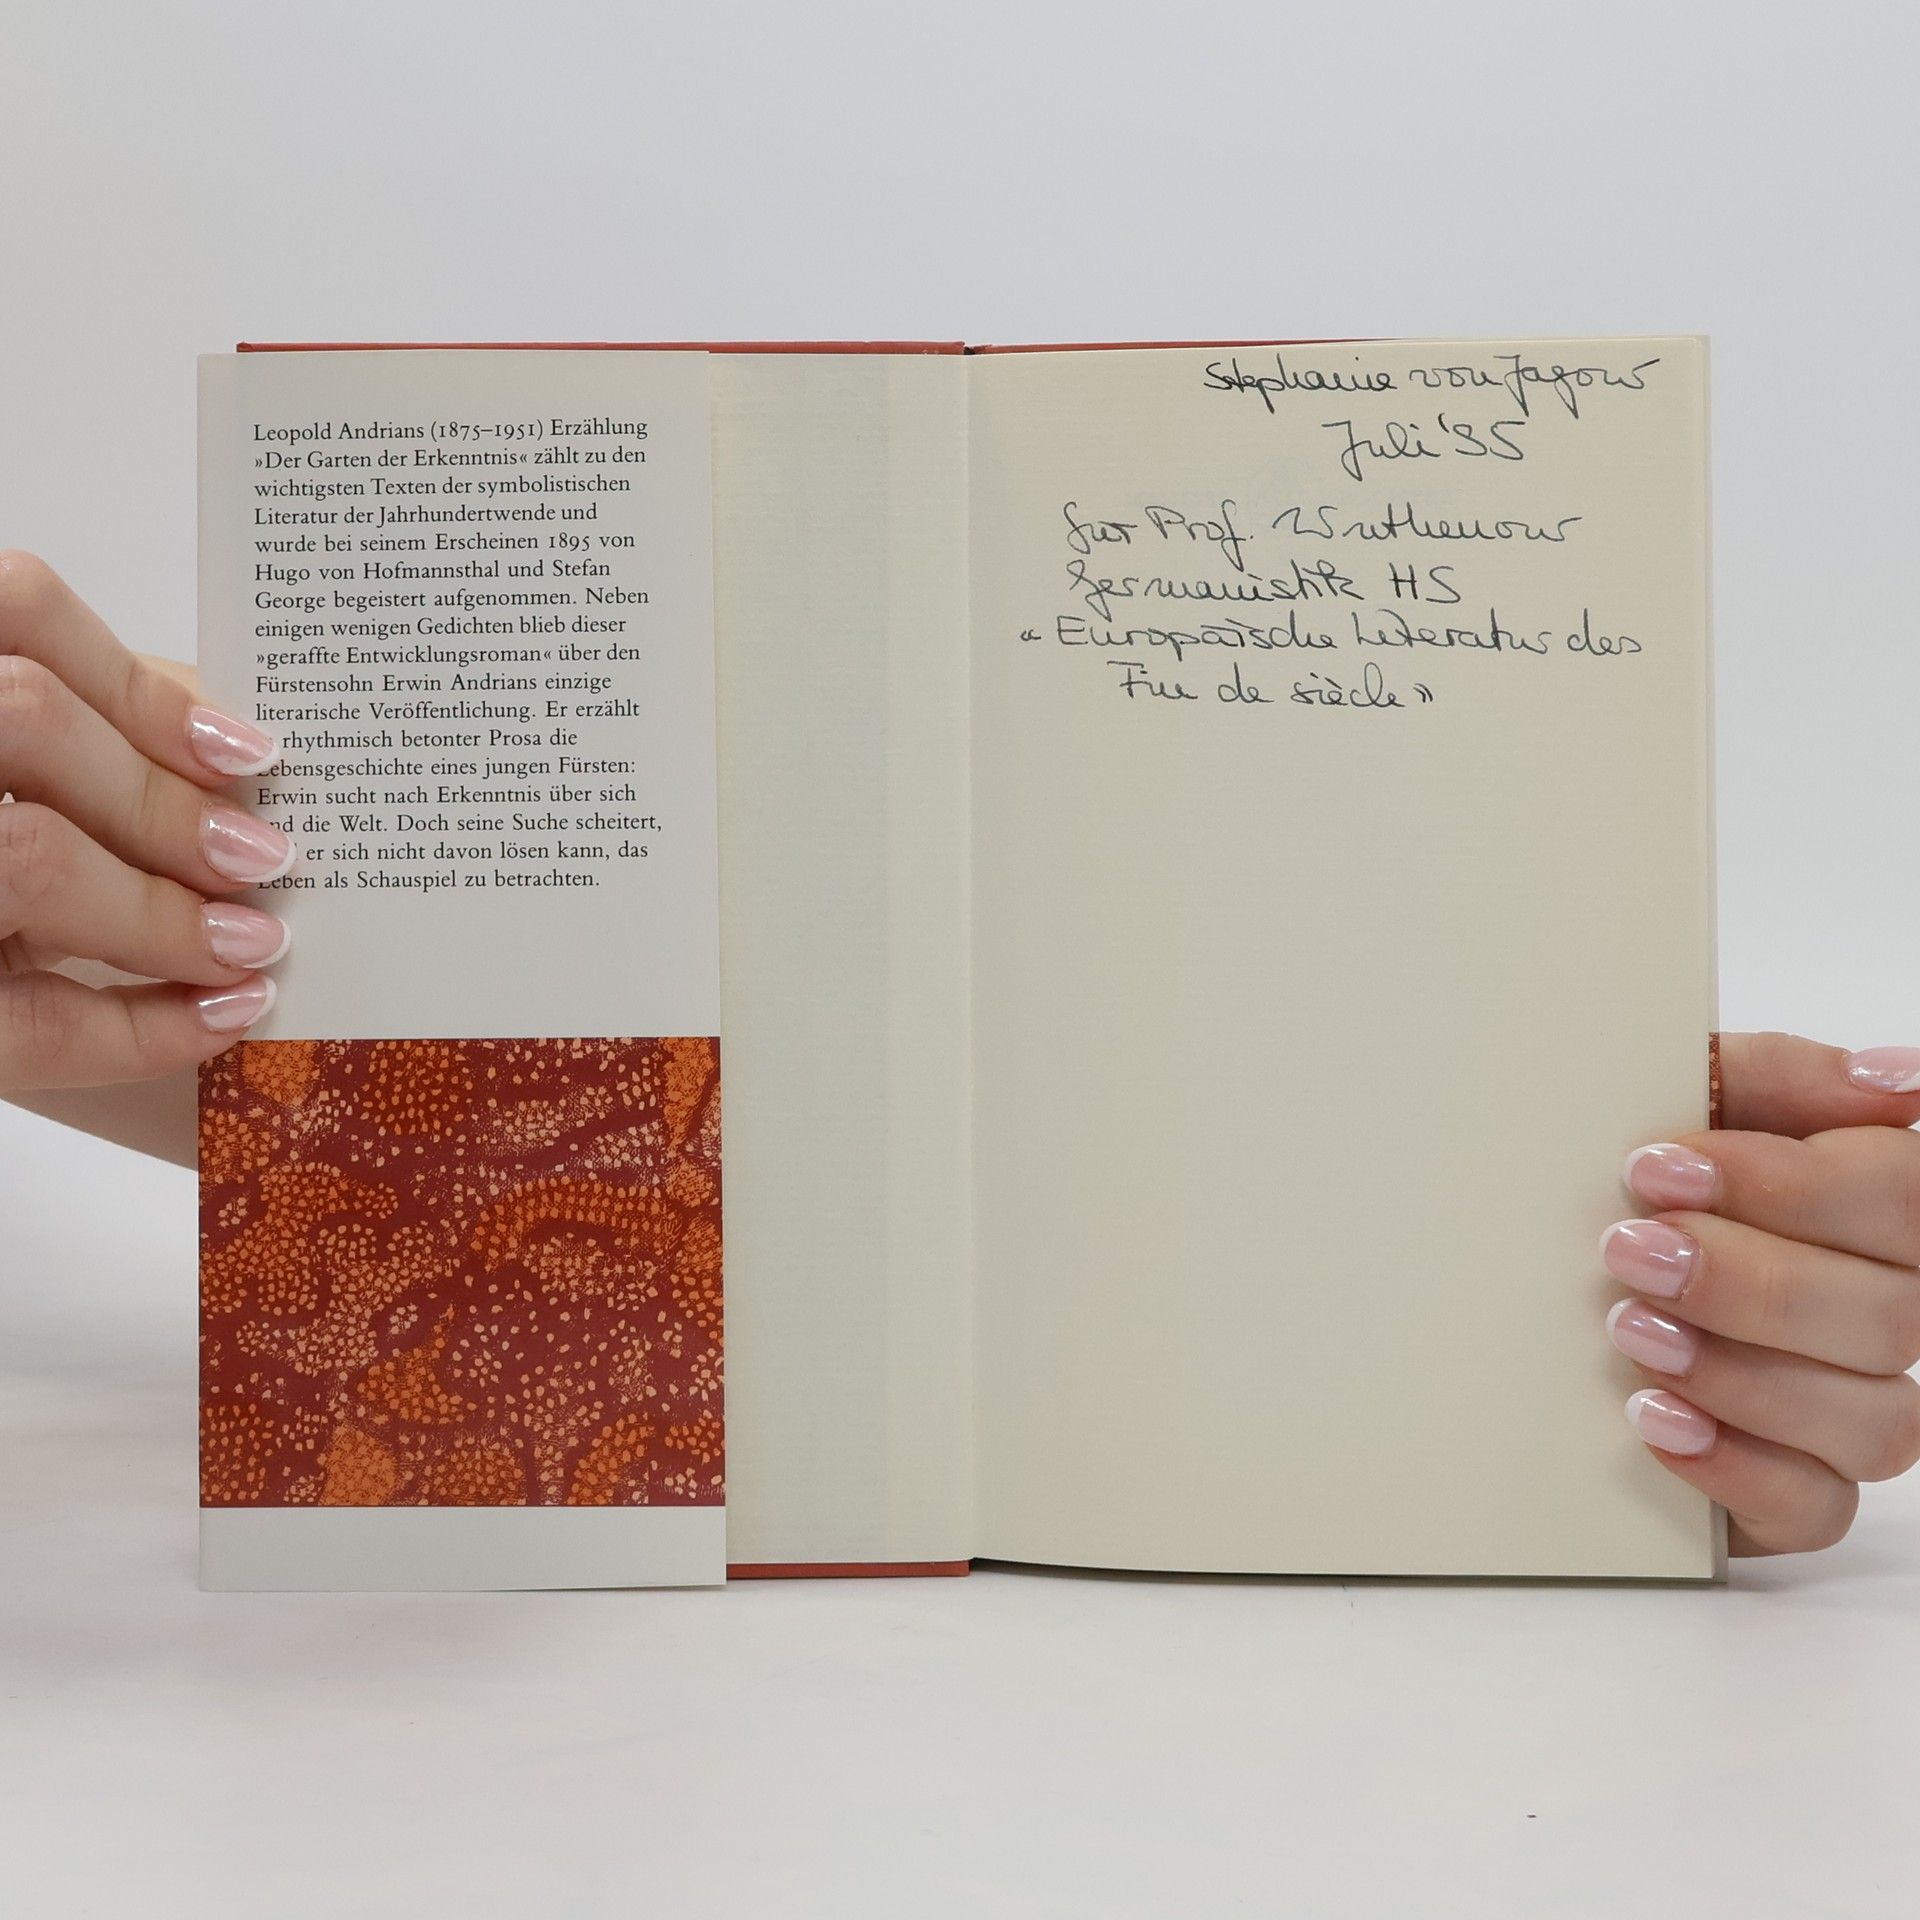 Leopold Andrians (1875–1951) Erzählung
»Der Garten der Erkenntnis« zählt zu den
wichtigsten Texten der symbolistischen
Literatur der Jahrhundertwende und
wurde bei seinem Erscheinen 1895 von
Hugo von Hofmannsthal und Stefan
George begeistert aufgenommen. Neben
einigen wenigen Gedichten blieb dieser
»geraffte Entwicklungsroman« über den
Fürstensohn Erwin Andrians einzige
literarische Veröffentlichung. Er erzählt
rhythmisch betonter Prosa die
Lebensgeschichte eines jungen Fürsten:
Erwin sucht nach Erkenntnis über sich
und die Welt. Doch seine Suche scheitert,
er sich nicht davon lösen kann, das
Leben als Schauspiel zu betrachten.
Stephanie von Jagow
Juli '95
für Prof. Wuthenow
Germanistik HS
«Europäische Literatur des
Fin de siècle»